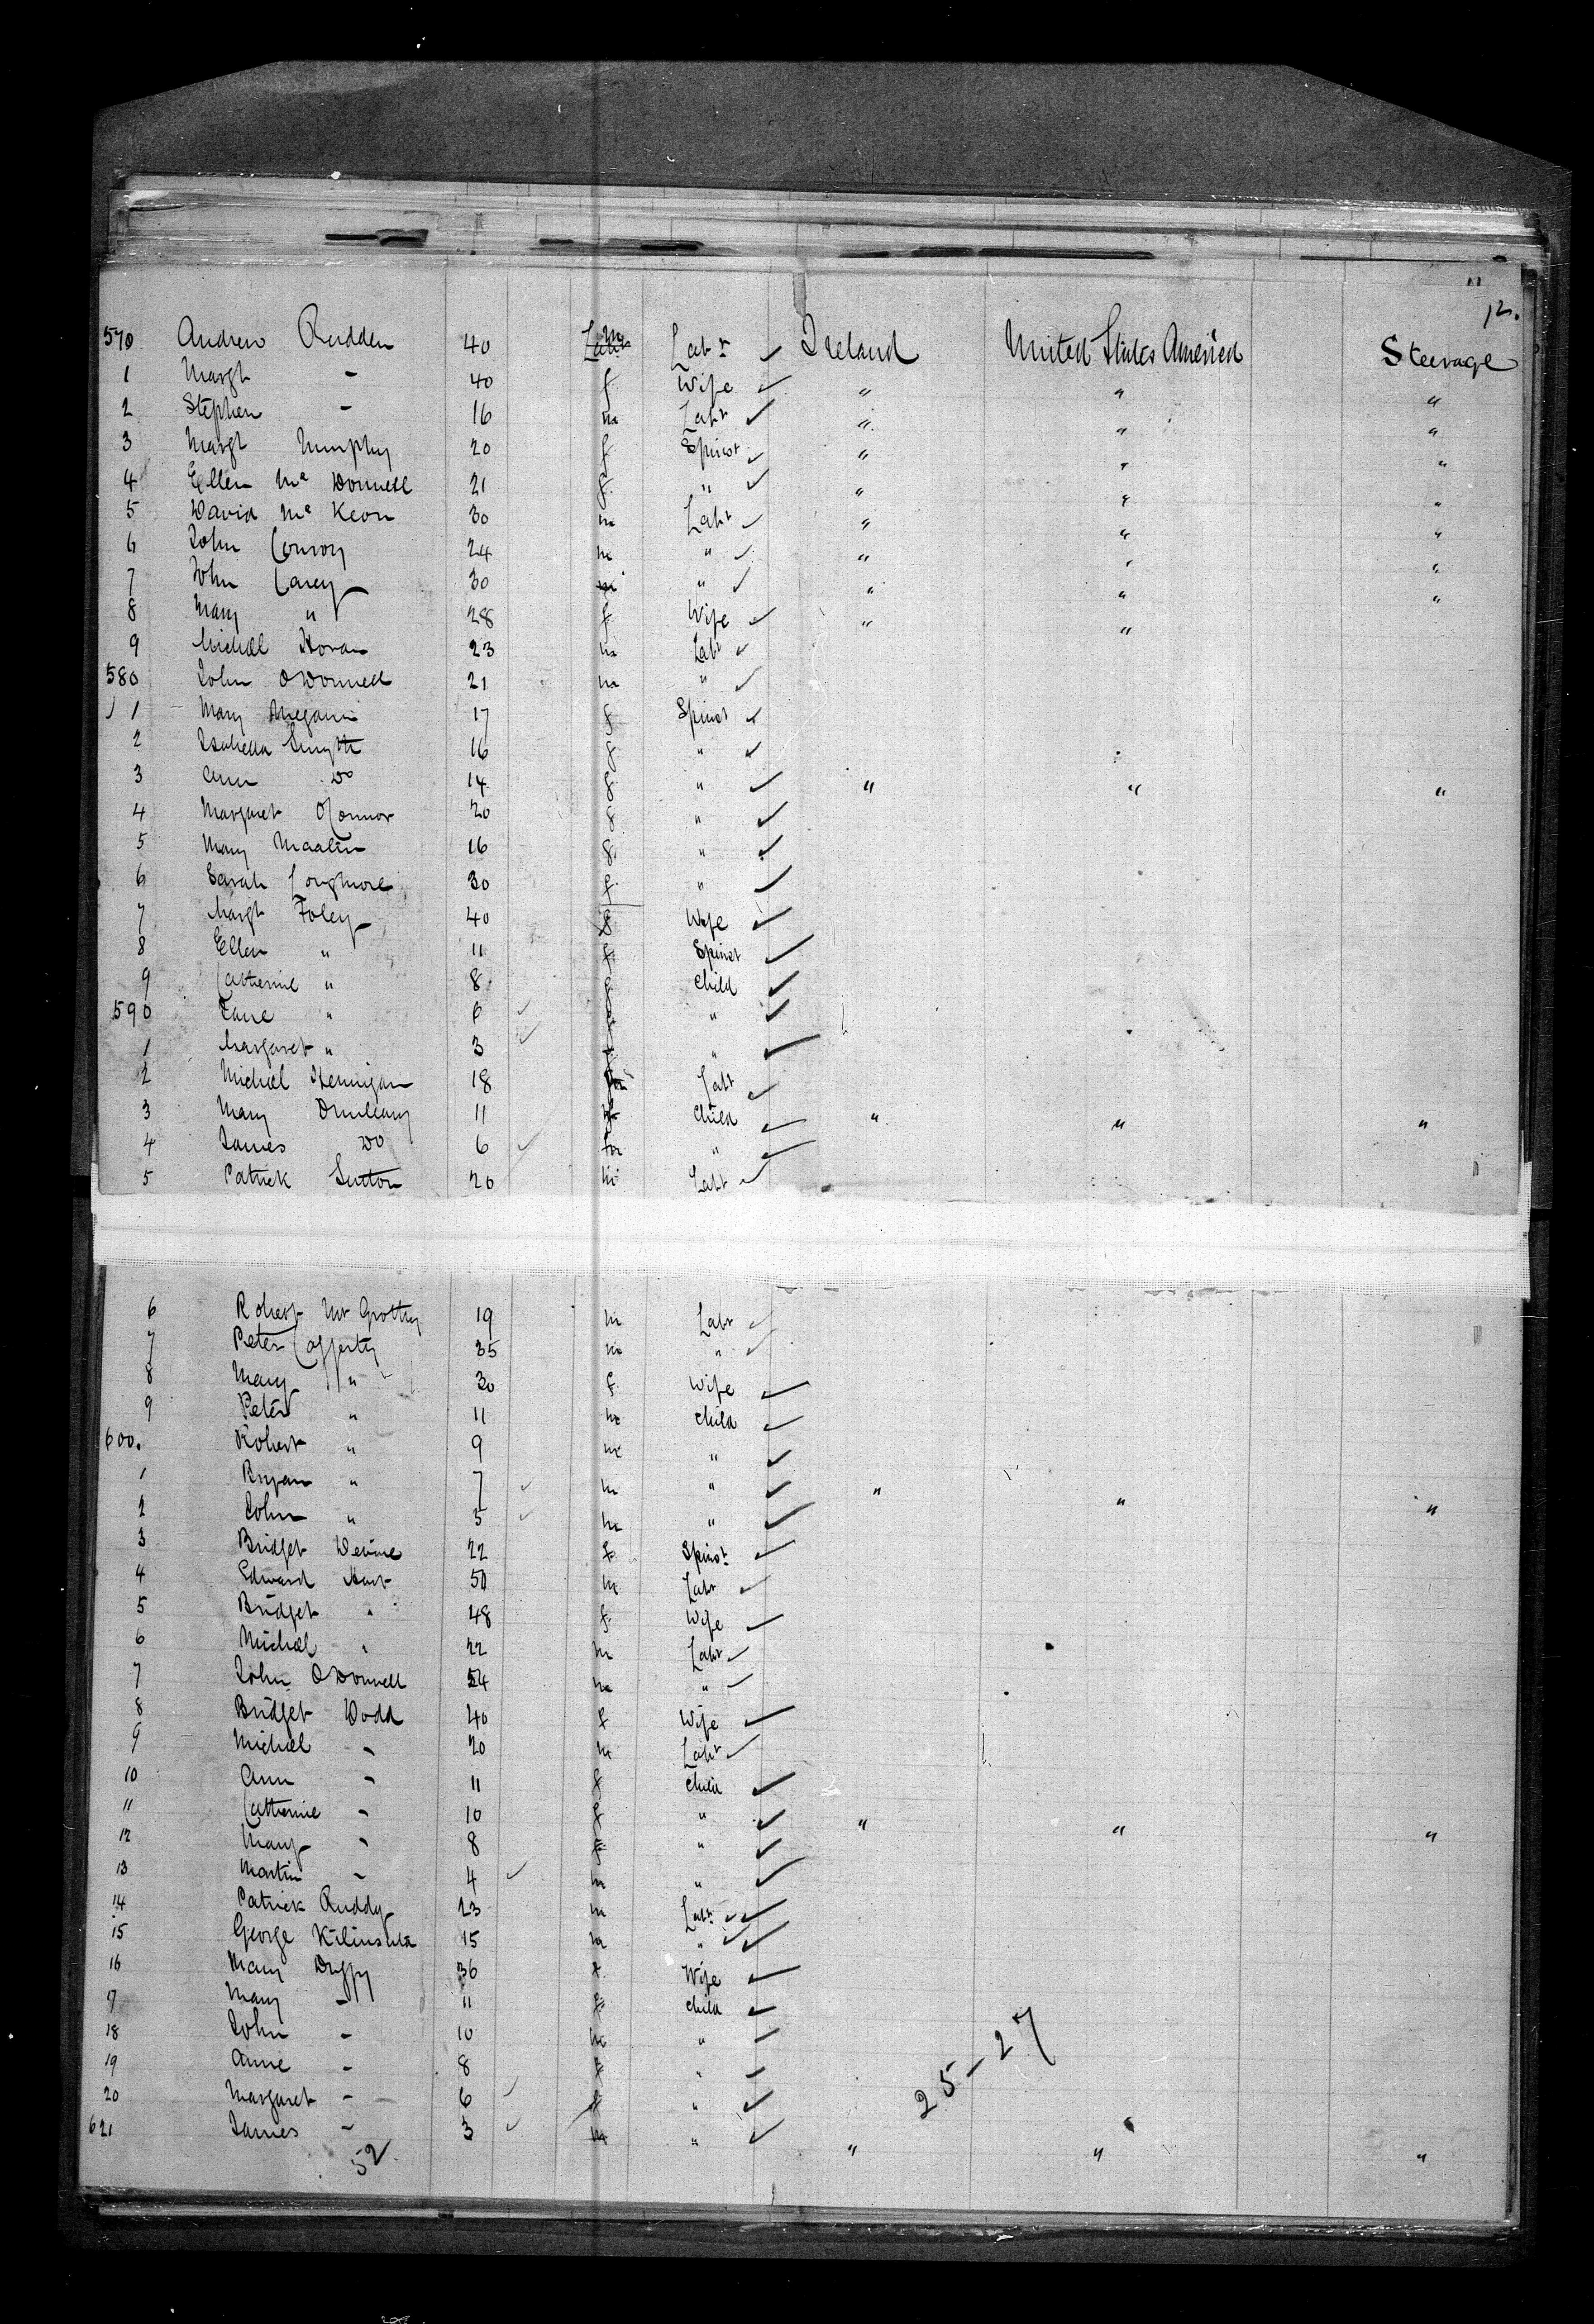 11
12.
570 Andrew Rudden 40 m Labr ✓ Ireland United States America Steerage
1 Margt - 40 f Wife ✓ " " "
2 Stephen - 16 m Labr ✓ " " "
3 Margt Murphy 20 f Spinst ✓ " " "
4 Ellen Mc Donnell 21 f " ✓ " " "
5 David Mc Keon 30 m Labr ✓ " " "
6 John Conroy 24 m " ✓ " " "
7 John Carey 30 m " ✓ " " "
8 Mary " 28 f Wife ✓ " "
9 Michael Horan 23 m Labr ✓
580 John O'Donnell 21 m " ✓
1 Mary 17 f Spinst ✓
2 Isabella Smyth 16 f " ✓
3 Ann Do 14 f " ✓ " " "
4 Margaret O'Connor 20 f " ✓
5 Mary 16 f " ✓
6 Sarah Longmore 30 f " ✓
7 Margt Foley 40 f Wife ✓
8 Ellen " 11 f Spinst ✓
9 Catherine " 8 f Child ✓
590 Jane " 6 ✓ f " ✓
1 Margaret " 3 ✓ f " ✓
2 Michael Hennigan 18 Labr ✓
3 Mary 11 f Child ✓ " " "
4 James Do 6 ✓ m " ✓
5 Patrick Sutton 20 m Labr ✓
6 Robert Mc Grotty 19 m Labr ✓
7 Peter Cafferty 35 m " ✓
8 Mary " 30 f Wife ✓
9 Peter " 11 m Child ✓
600. Robert " 9 m " ✓
1 Bryan " 7 ✓ m " ✓ " " "
2 John " 5 ✓ m " ✓
3 Bridget Devine 22 f Spinst ✓
4 Edward Hart 50 m Labr ✓
5 Bridget " 48 f Wife ✓
6 Michael " 22 m Labr ✓
7 John O'Donnell 54 m " ✓
8 Bridget Dodd 40 f Wife ✓
9 Michael " 20 m Labr ✓
10 Ann " 11 f Child ✓
11 Catherine " 10 f " ✓ " " "
12 Mary " 8 f " ✓
13 Martin " 4 ✓ m " ✓
14 Patrick Ruddy 23 m Labr ✓✓
15 George 15 m " ✓✓
16 Mary Duffy 36 f Wife ✓
17 Mary - 11 f Child ✓
18 John - 10 m " ✓
19 Anne - 8 f " ✓
20 Margaret - 6 ✓ f " ✓
621 James - 3 ✓ m " ✓ " " "
52
25-27